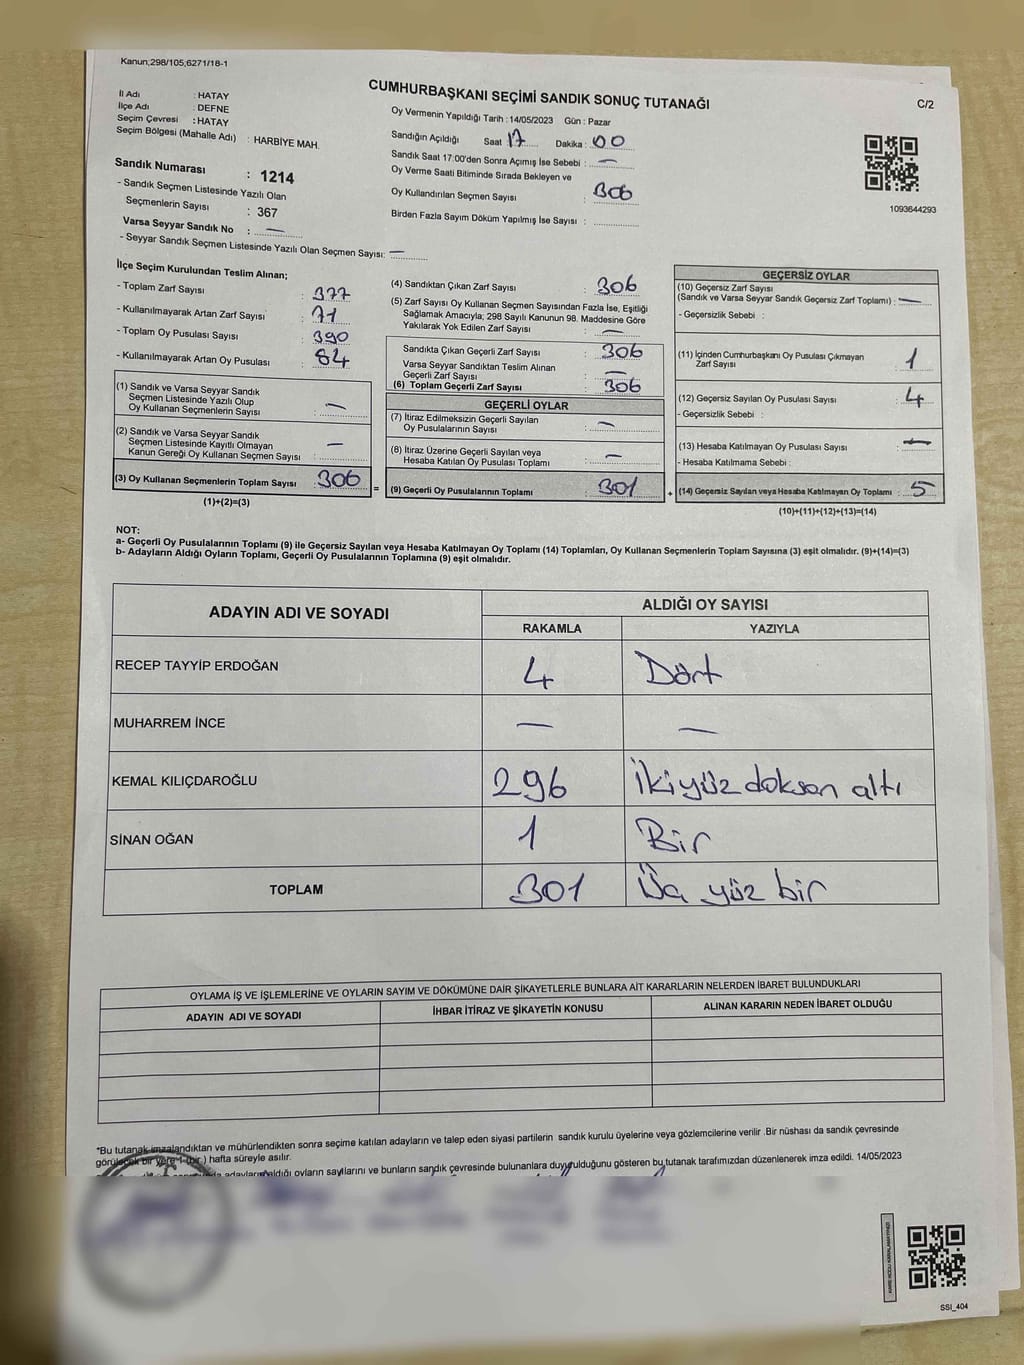 Kanun;298/105;6271/18-1
CUMHURBAŞKANI SEÇİMİ SANDIK SONUÇ TUTANAĞI
C/2
İl Adı : HATAY
İlçe Adı : DEFNE
Seçim Çevresi : HATAY
Seçim Bölgesi (Mahalle Adı) : HARBİYE MAH.
Sandık Numarası : 1214
- Sandık Seçmen Listesinde Yazılı Olan
Seçmenlerin Sayısı : 367
Varsa Seyyar Sandık No : —
- Seyyar Sandık Seçmen Listesinde Yazılı Olan Seçmen Sayısı: —
Oy Vermenin Yapıldığı Tarih : 14/05/2023 Gün : Pazar
Sandığın Açıldığı Saat 17 Dakika : 00
Sandık Saat 17:00'den Sonra Açımış İse Sebebi : —
Oy Verme Saati Bitiminde Sırada Bekleyen ve
Oy Kullandırılan Seçmen Sayısı : 306
Birden Fazla Sayım Döküm Yapılmış İse Sayısı :
1093644293
İlçe Seçim Kurulundan Teslim Alınan;
- Toplam Zarf Sayısı : 377
- Kullanılmayarak Artan Zarf Sayısı : 71
- Toplam Oy Pusulası Sayısı : 390
- Kullanılmayarak Artan Oy Pusulası : 84
(1) Sandık ve Varsa Seyyar Sandık
Seçmen Listesinde Yazılı Olup
Oy Kullanan Seçmenlerin Sayısı : —
(2) Sandık ve Varsa Seyyar Sandık
Seçmen Listesinde Kayıtlı Olmayan
Kanun Gereği Oy Kullanan Seçmen Sayısı : —
(3) Oy Kullanan Seçmenlerin Toplam Sayısı : 306 =
(1)+(2)=(3)
(4) Sandıktan Çıkan Zarf Sayısı : 306
(5) Zarf Sayısı Oy Kullanan Seçmen Sayısından Fazla İse, Eşitliği
Sağlamak Amacıyla; 298 Sayılı Kanunun 98. Maddesine Göre
Yakılarak Yok Edilen Zarf Sayısı : —
Sandıkta Çıkan Geçerli Zarf Sayısı : 306
Varsa Seyyar Sandıktan Teslim Alınan
Geçerli Zarf Sayısı : —
(6) Toplam Geçerli Zarf Sayısı : 306
GEÇERLİ OYLAR
(7) İtiraz Edilmeksizin Geçerli Sayılan
Oy Pusulalarının Sayısı : —
(8) İtiraz Üzerine Geçerli Sayılan veya
Hesaba Katılan Oy Pusulası Toplamı : —
(9) Geçerli Oy Pusulalarının Toplamı : 301 +
GEÇERSİZ OYLAR
(10) Geçersiz Zarf Sayısı
(Sandık ve Varsa Seyyar Sandık Geçersiz Zarf Toplamı) : —
- Geçersizlik Sebebi :
(11) İçinden Cumhurbaşkanı Oy Pusulası Çıkmayan
Zarf Sayısı : 1
(12) Geçersiz Sayılan Oy Pusulası Sayısı : 4
- Geçersizlik Sebebi :
(13) Hesaba Katılmayan Oy Pusulası Sayısı : —
- Hesaba Katılmama Sebebi :
(14) Geçersiz Sayılan veya Hesaba Katılmayan Oy Toplamı : 5
(10)+(11)+(12)+(13)=(14)
NOT:
a- Geçerli Oy Pusulalarının Toplamı (9) ile Geçersiz Sayılan veya Hesaba Katılmayan Oy Toplamı (14) Toplamları, Oy Kullanan Seçmenlerin Toplam Sayısına (3) eşit olmalıdır. (9)+(14)=(3)
b- Adayların Aldığı Oyların Toplamı, Geçerli Oy Pusulalarının Toplamına (9) eşit olmalıdır.
ADAYIN ADI VE SOYADI ALDIĞI OY SAYISI
RAKAMLA YAZIYLA
RECEP TAYYİP ERDOĞAN 4 Dört
MUHARREM İNCE — —
KEMAL KILIÇDAROĞLU 296 İkiyüz doksan altı
SİNAN OĞAN 1 Bir
TOPLAM 301 Üç yüz bir
OYLAMA İŞ VE İŞLEMLERİNE VE OYLARIN SAYIM VE DÖKÜMÜNE DAİR ŞİKAYETLERLE BUNLARA AİT KARARLARIN NELERDEN İBARET BULUNDUKLARI
ADAYIN ADI VE SOYADI İHBAR İTİRAZ VE ŞİKAYETİN KONUSU ALINAN KARARIN NEDEN İBARET OLDUĞU
*Bu tutanak imzalandıktan ve mühürlendikten sonra seçime katılan adayların ve talep eden siyasi partilerin sandık kurulu üyelerine veya gözlemcilerine verilir .Bir nüshası da sandık çevresinde
görülecek bir yere 1 (bir ) hafta süreyle asılır.
adayların aldığı oyların sayılarını ve bunların sandık çevresinde bulunanlara duyurulduğunu gösteren bu tutanak tarafımızdan düzenlenerek imza edildi. 14/05/2023
KARE KODU KARALAMAYINIZ!
SSI_404